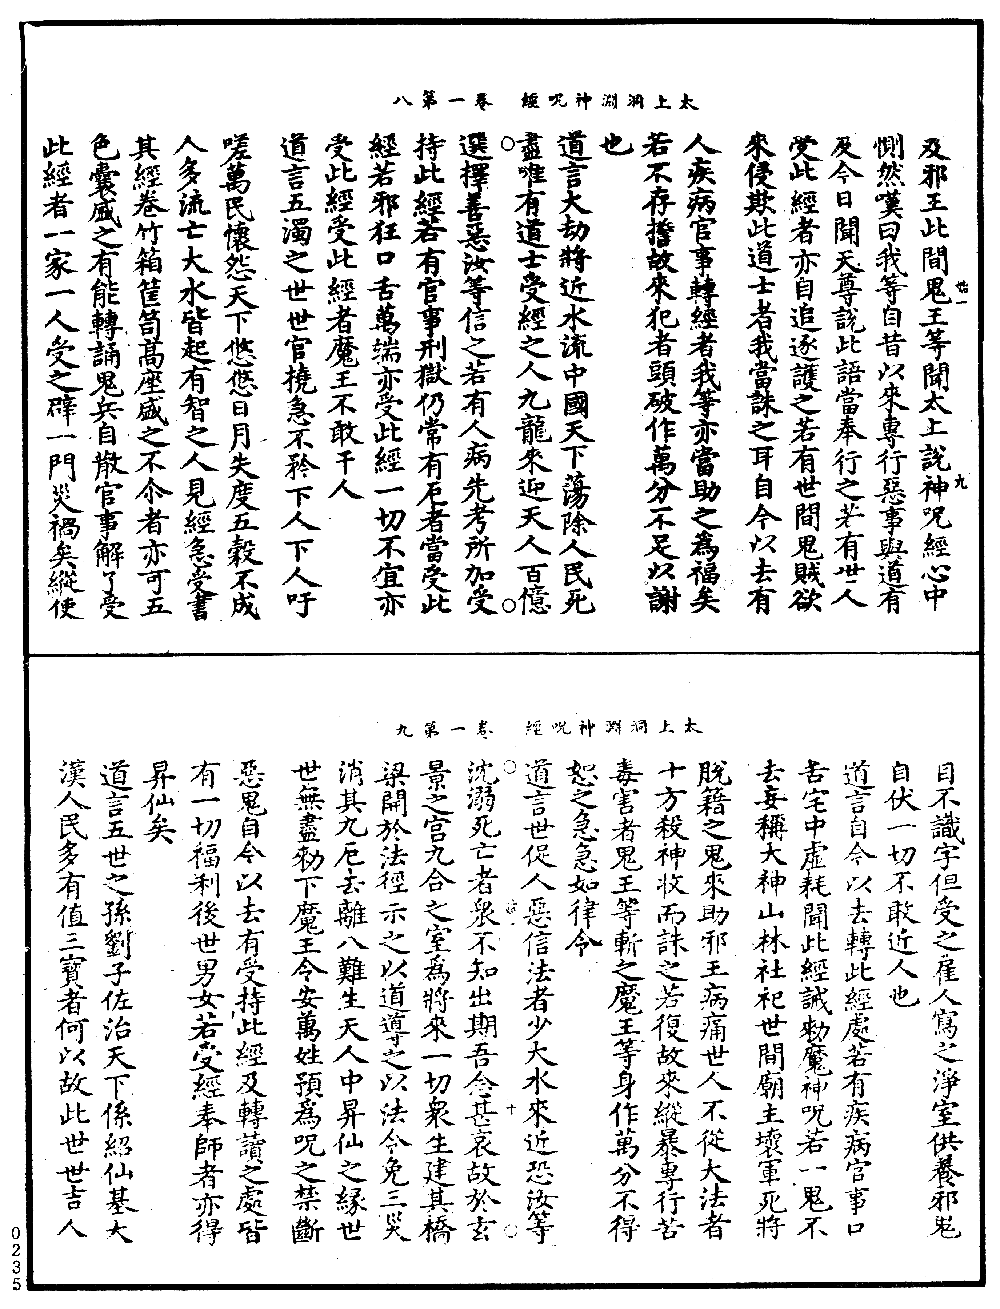 太上洞淵神呪經　卷一第八
及邪王此間鬼王等聞太上說神呪經心中
惻然嘆曰我等自昔以來專行惡事與道有
及今日聞天尊說此語當奉行之若有世人
受此經者亦自追逐護之若有世間鬼賊欲
來侵欺此道士者我當誅之耳自今以去有
人疾病官事轉經者我等亦當助之為福矣
若不存擔故來犯者頭破作萬分不足以謝
也
道言大劫將近水流中國天下蕩除人民死
盡唯有道士受經之人九龍來迎天人百億
選擇善惡汝等信之若有人病先考所加受
持此經若有官事刑獄仍常有厄者當受此
經若邪狂口舌萬端亦受此經一切不宜亦
受此經受此經者魔王不敢干人
道言五濁之世世官橈急不矜下人下人吁
嗟萬民懷怨天下悠悠日月失度五穀不成
人多流亡大水皆起有智之人見經急受書
其經卷竹箱筐笥高座盛之不尒者亦可五
色囊盛之有能轉誦鬼兵自散官事解了受
此經者一家一人受之辟一門災禍矣縱使
始一
九
太上洞淵神呪經　卷一第九
目不識字但受之雇人寫之淨室供養邪鬼
自伏一切不敢近人也
道言自今以去轉此經處若有疾病官事口
舌宅中虛耗聞此經誡勑魔神呪若一鬼不
去妄稱大神山林社祀世間廟主壞軍死將
脫籍之鬼來助邪王病痛世人不從大法者
十方殺神收而誅之若復故來縱暴專行苦
毒害者鬼王等斬之魔王等身作萬分不得
恕之急急如律令
道言世促人惡信法者少大水來近恐汝等
沈溺死亡者衆不知出期吾念甚哀故於玄
景之宮九合之室為將來一切衆生建其橋
梁開於法徑示之以道導之以法令免三災
消其九厄去離八難生天人中昇仙之緣世
世無盡勑下魔王令安萬姓預為呪之禁斷
惡鬼自今以去有受持此經及轉讀之處皆
有一切福利後世男女若受經奉師者亦得
昇仙矣
道言五世之孫劉子佐治天下係紹仙基大
漢人民多有值三寶者何以故此世世吉人
十
0235